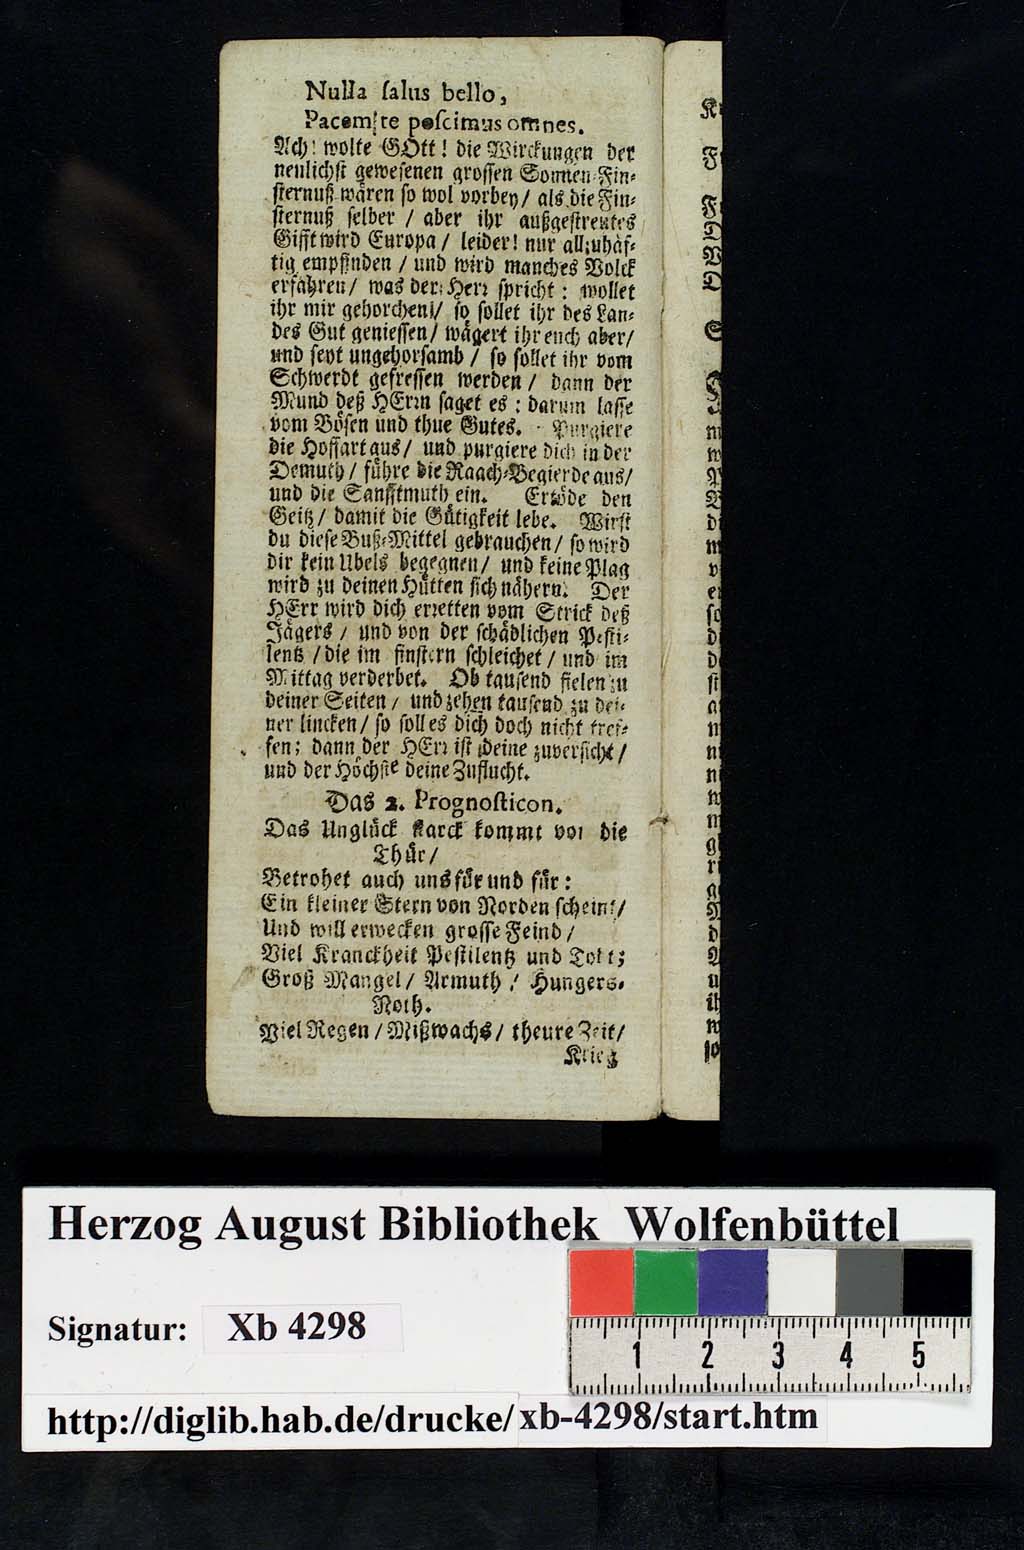 Nulla ſalus bello,
Pacem te poſcimus omnes.
Ach! wolte GOtt! die Wirckungen der
neulichſt geweſenen groſſen Sonnen-Fin-
ſternuß wären ſo wol vorbey/ als die Fin-
ſternuß ſelber / aber ihr außgeſtreutes
Gifft wird Europa/ leider! nur allzuhäf-
tig empfinden / und wird manches Volck
erfahren/ was der Herr ſpricht: wollet
ihr mir gehorchen/ ſo ſollet ihr des Lan-
des Gut genieſſen/ wägert ihr euch aber/
und ſeyt ungehorſamb / ſo ſollet ihr vom
Schwerdt gefreſſen werden/ dann der
Mund deß HErrn ſaget es: darum laſſe
vom Böſen und thue Gutes. Purgiere
die Hoffart aus/ und purgiere dich in der
Demuth/ führe die Raach-Begierde aus/
und die Sanfftmuth ein. Ertöde den
Geitz/ damit die Gütigkeit lebe. Wirſt
du dieſe Buß-Mittel gebrauchen/ ſo wird
dir kein Ubels begegnen/ und keine Plag
wird zu deinen Hütten ſich nähern. Der
HErr wird dich erretten vom Strick deß
Jägers / und von der ſchädlichen Peſti-
lentz / die im finſtern ſchleichet/ und im
Mittag verderbet. Ob tauſend fielen zu
deiner Seiten/ und zehen tauſend zu dei-
ner lincken/ ſo ſoll es dich doch nicht tref-
fen; dann der HErr iſt deine zuverſicht/
und der Höchſte deine Zuflucht.
Das 2. Prognoſticon.
Das Unglück ſtarck kommt vor die
Thür/
Betrohet auch uns für und für:
Ein kleiner Stern von Norden ſcheint/
Und will erwecken groſſe Feind/
Viel Kranckheit Peſtilentz und Todt;
Groß Mangel/ Armuth / Hungers-
Noth.
Viel Regen/ Mißwachs/ theure Zeit/
Krieg
Herzog August Bibliothek Wolfenbüttel
Signatur: Xb 4298
1 2 3 4 5
http://diglib.hab.de/drucke/xb-4298/start.htm